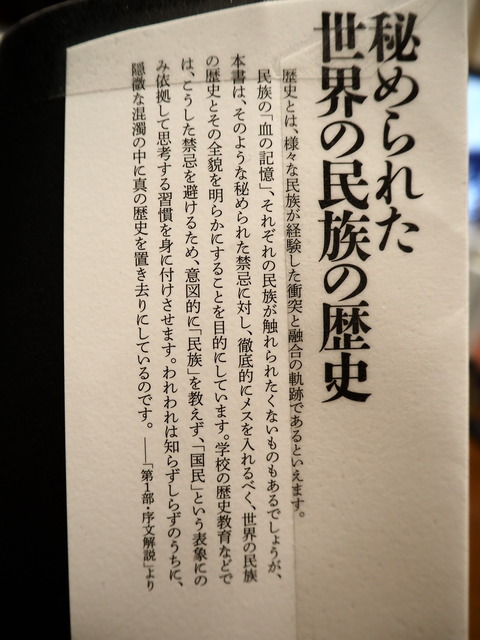 秘められた
世界の民族の歴史
歴史とは、様々な民族が経験した衝突と融合の軌跡であるといえます。
民族の「血の記憶」、それぞれの民族が触れられたくないものもあるでしょうが、
本書は、そのような秘められた禁忌に対し、徹底的にメスを入れるべく、世界の民族
の歴史とその全貌を明らかにすることを目的にしています。学校の歴史教育などで
は、こうした禁忌を避けるため、意図的に「民族」を教えず、「国民」という表象にの
み依拠して思考する習慣を身に付けさせます。われわれは知らずしらずのうちに、
隠微な混濁の中に真の歴史を置き去りにしているのです。――「第1部・序文解説」より